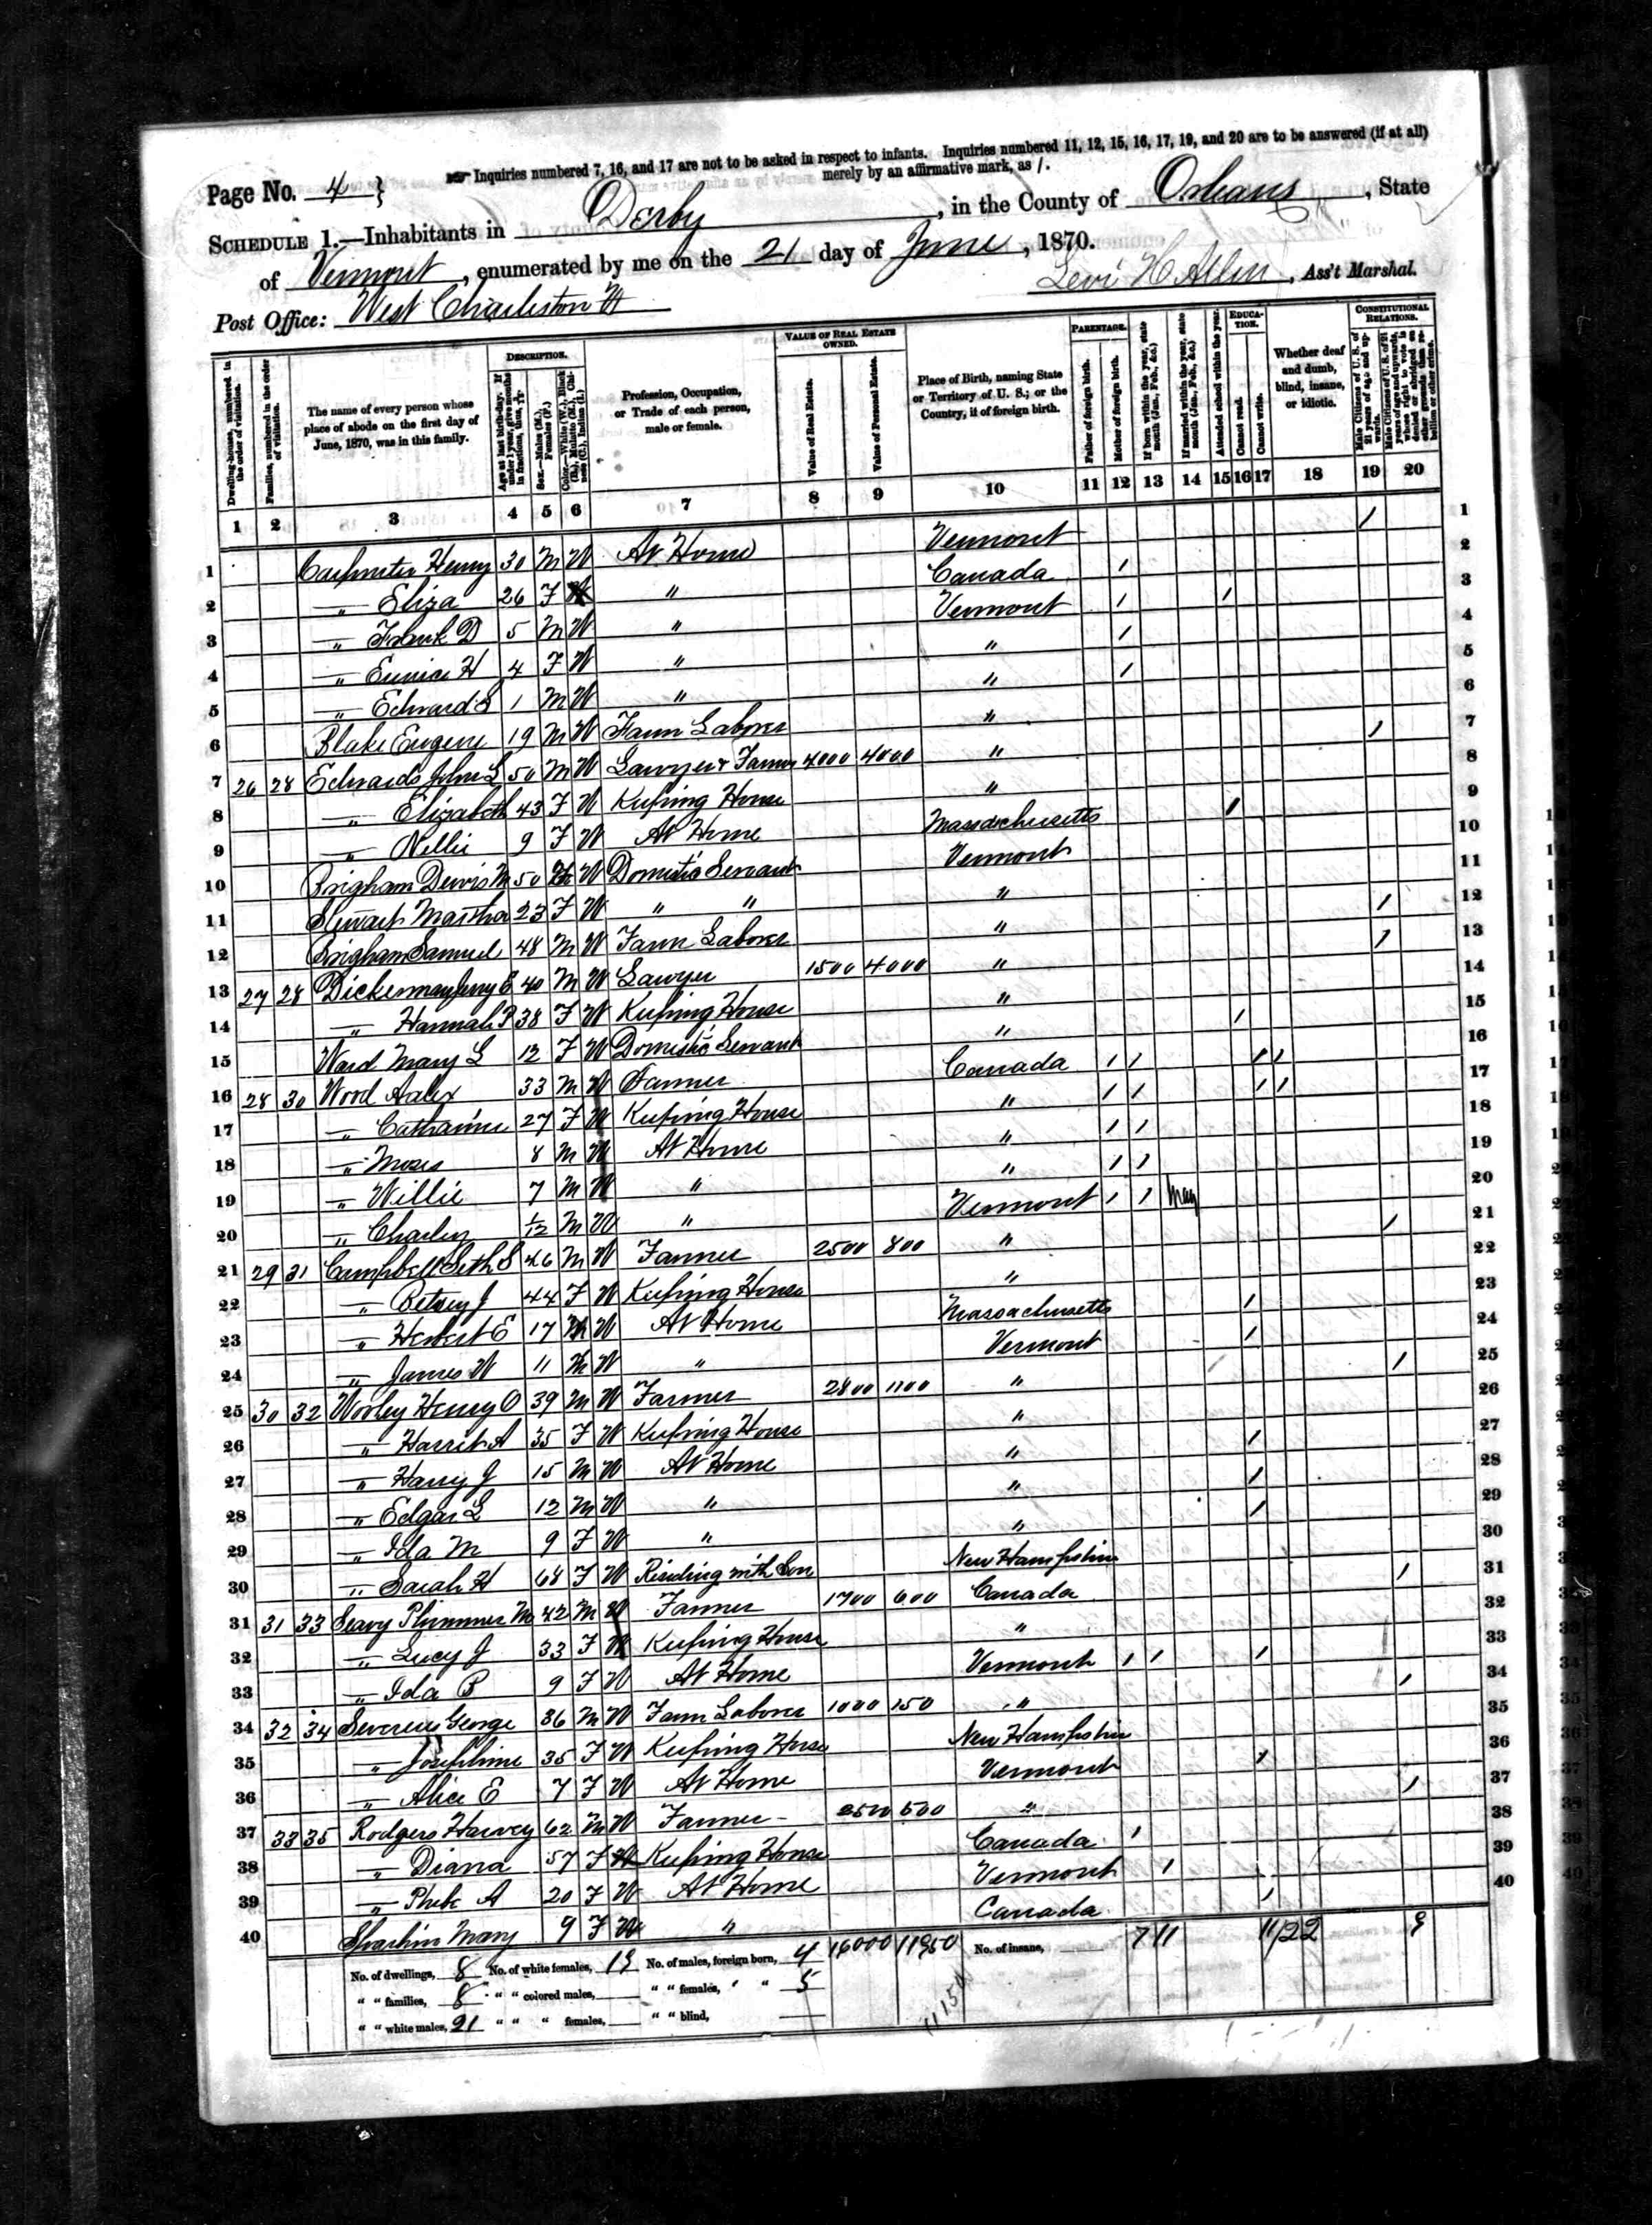 Inquiries numbered 7, 16, and 17 are not to be asked in respect to infants. Inquiries numbered 11, 12, 15, 16, 17, 19, and 20 are to be answered (if at all)
merely by an affirmative mark, as /.
Page No. 4
SCHEDULE 1.—Inhabitants in Derby, in the County of Orleans, State
of Vermont, enumerated by me on the 21 day of June, 1870.
Post Office: West Charleston Vt
Levi H Allen, Ass't Marshal.
Dwelling-houses, numbered in the order of visitation.
Families, numbered in the order of visitation.
The name of every person whose place of abode on the first day of June, 1870, was in this family.
DESCRIPTION.
Age at last birth-day. If under 1 year, give months in fractions, thus, 3/12
Sex.—Males (M.), Females (F.)
Color.—White (W.), Black (B.), Mulatto (M.), Chinese (C.), Indian (I.)
Profession, Occupation, or Trade of each person, male or female.
VALUE OF REAL ESTATE OWNED.
Value of Real Estate.
Value of Personal Estate.
Place of Birth, naming State or Territory of U. S.; or the Country, if of foreign birth.
PARENTAGE.
Father of foreign birth.
Mother of foreign birth.
If born within the year, state month (Jan., Feb., &c.)
If married within the year, state month (Jan., Feb., &c.)
Attended school within the year.
EDUCATION.
Cannot read.
Cannot write.
Whether deaf and dumb, blind, insane, or idiotic.
CONSTITUTIONAL RELATIONS.
Male Citizens of U. S. of 21 years of age and upwards.
Male Citizens of U. S. of 21 years of age and upwards, whose right to vote is denied or abridged on other grounds than rebellion or other crime.
1 2 3 4 5 6 7 8 9 10 11 12 13 14 15 16 17 18 19 20
1 Carpenter Henry 30 M W At Home Vermont / 1
2 — " Eliza 26 F W " Canada / 2
3 — " Frank D 5 M W " Vermont / / 3
4 — " Eunice H 4 F W " " / 4
5 — " Edward S 1 M W " " / 5
6 Blake Eugene 19 M W Farm Laborer " 6
7 26 28 Edwards John L 50 M W Lawyer & Farmer 4000 4000 " / 7
8 — " Elizabeth 43 F W Keeping House " 8
9 — " Nellie 9 F W At Home Massachusetts / 9
10 Brigham 50 W Domestic Servant Vermont 10
11 Stewart Martha 23 F W " " " 11
12 Brigham Samuel 48 M W Farm Laborer " / 12
13 27 28 Dickerman Jerry E 40 M W Lawyer 1500 4000 " / 13
14 — " Hannah P 38 F W Keeping House " 14
15 Ward Mary L 12 F W Domestic Servant " / 15
16 28 30 Wood Aalex 33 M W Farmer Canada / / / / 16
17 — " Catharine 27 F W Keeping House " / / / / 17
18 — " Moses 8 M W At Home " / / 18
19 — " Willie 7 M W " " / / 19
20 — " Charley 1/12 M W " Vermont / / May 20
21 29 31 Campbell Seth S 46 M W Farmer 2500 800 " / 21
22 — " Betsey J 44 F W Keeping House " 22
23 — " Herbert E 17 M W At Home Massachusetts / 23
24 — " James W 11 M W " Vermont / 24
25 30 32 Wooley Henry O 39 M W Farmer 2800 1100 " / 25
26 — " Harriet A 35 F W Keeping House " 26
27 — " Harry J 15 M W At Home " / 27
28 — " Edgar L 12 M W " " / 28
29 — " Ida M 9 F W " " / 29
30 — " Sarah H 68 F W Residing with Son New Hampshire 30
31 31 33 Seavy Plummer M 42 M W Farmer 1700 600 Canada / 31
32 — " Lucy J 33 F W Keeping House " 32
33 — " Ida B 9 F W At Home Vermont / / / 33
34 32 34 Severens George 36 M W Farm Laborer 1000 150 " / 34
35 — " Josephine 35 F W Keeping House New Hampshire 35
36 — " Alice E 7 F W At Home Vermont / 36
37 33 35 Rodgers Harvey 62 M W Farmer 2500 500 " / 37
38 — " Diana 57 F W Keeping House Canada / 38
39 — " Phebe A 20 F W At Home Vermont / 39
40 Mary 9 F W " Canada / 40
No. of dwellings, 8 No. of white females, 19 No. of males, foreign born, 4 16000 11950 No. of insane, 7 11 11 2 2 9
" " families, 8 " " colored males, " " females, " " 5
" " white males, 21 " " " females, " " blind,
11150